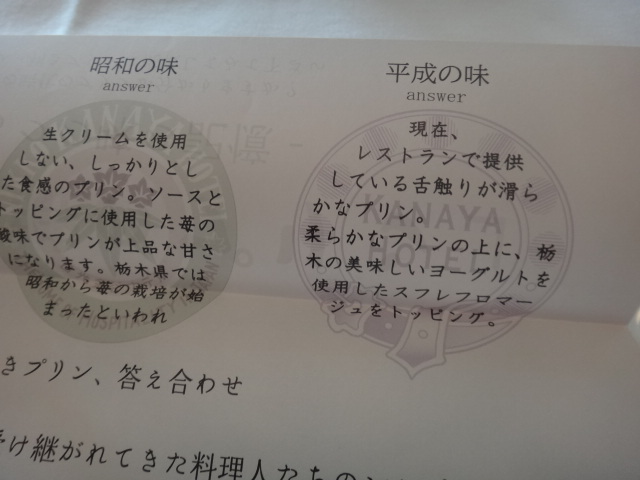 昭和の味
answer
生クリームを使用
しない、しっかりとし
た食感のプリン。ソースと
トッピングに使用した苺の
酸味でプリンが上品な甘さ
になります。栃木県では
昭和から苺の栽培が始
まったといわれ
平成の味
answer
現在、
レストランで提供
している舌触りが滑ら
かなプリン。
柔らかなプリンの上に、栃
木の美味しいヨーグルトを
使用したスフレフロマー
ジュをトッピング。
KANAYA
HOTEL
きプリン、答え合わせ
受け継がれてきた料理人たちの